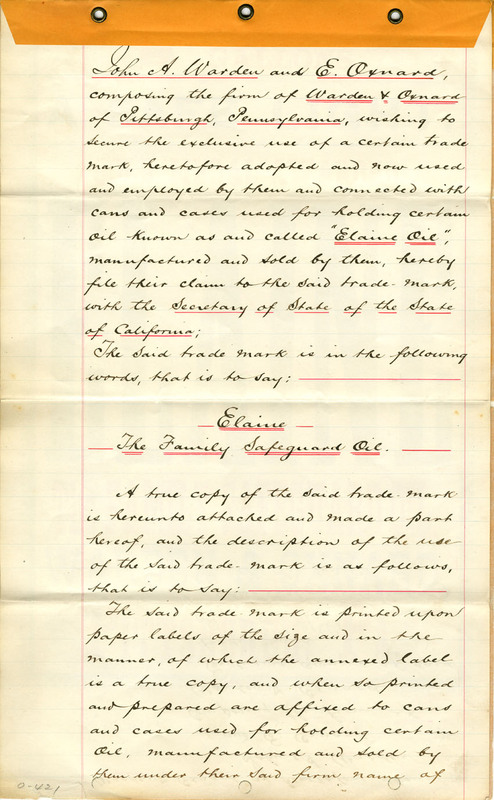 John A. Warden and E. Oxnard,
composing the firm of Warden & Oxnard
of Pittsburgh, Pennsylvania, wishing to
secure the exclusive use of a certain trade
mark, heretofore adopted and now used
and employed by them and connected with
cans and cases used for holding certain
oil known as and called "Elaine Oil",
manufactured and sold by them, hereby
file their claim to the said trade-mark,
with the Secretary of State of the State
of California;
The said trade mark is in the following
words, that is to say:
Elaine
The Family Safeguard Oil.
A true copy of the said trade-mark
is hereunto attached and made a part
hereof, and the description of the use
of the said trade-mark is as follows,
that is to say:
The said trade-mark is printed upon
paper labels of the size and in the
manner, of which the annexed label
is a true copy, and when so printed
and prepared are affixed to cans
and cases used for holding certain
Oil, manufactured and sold by
them under their said firm name of
0-421